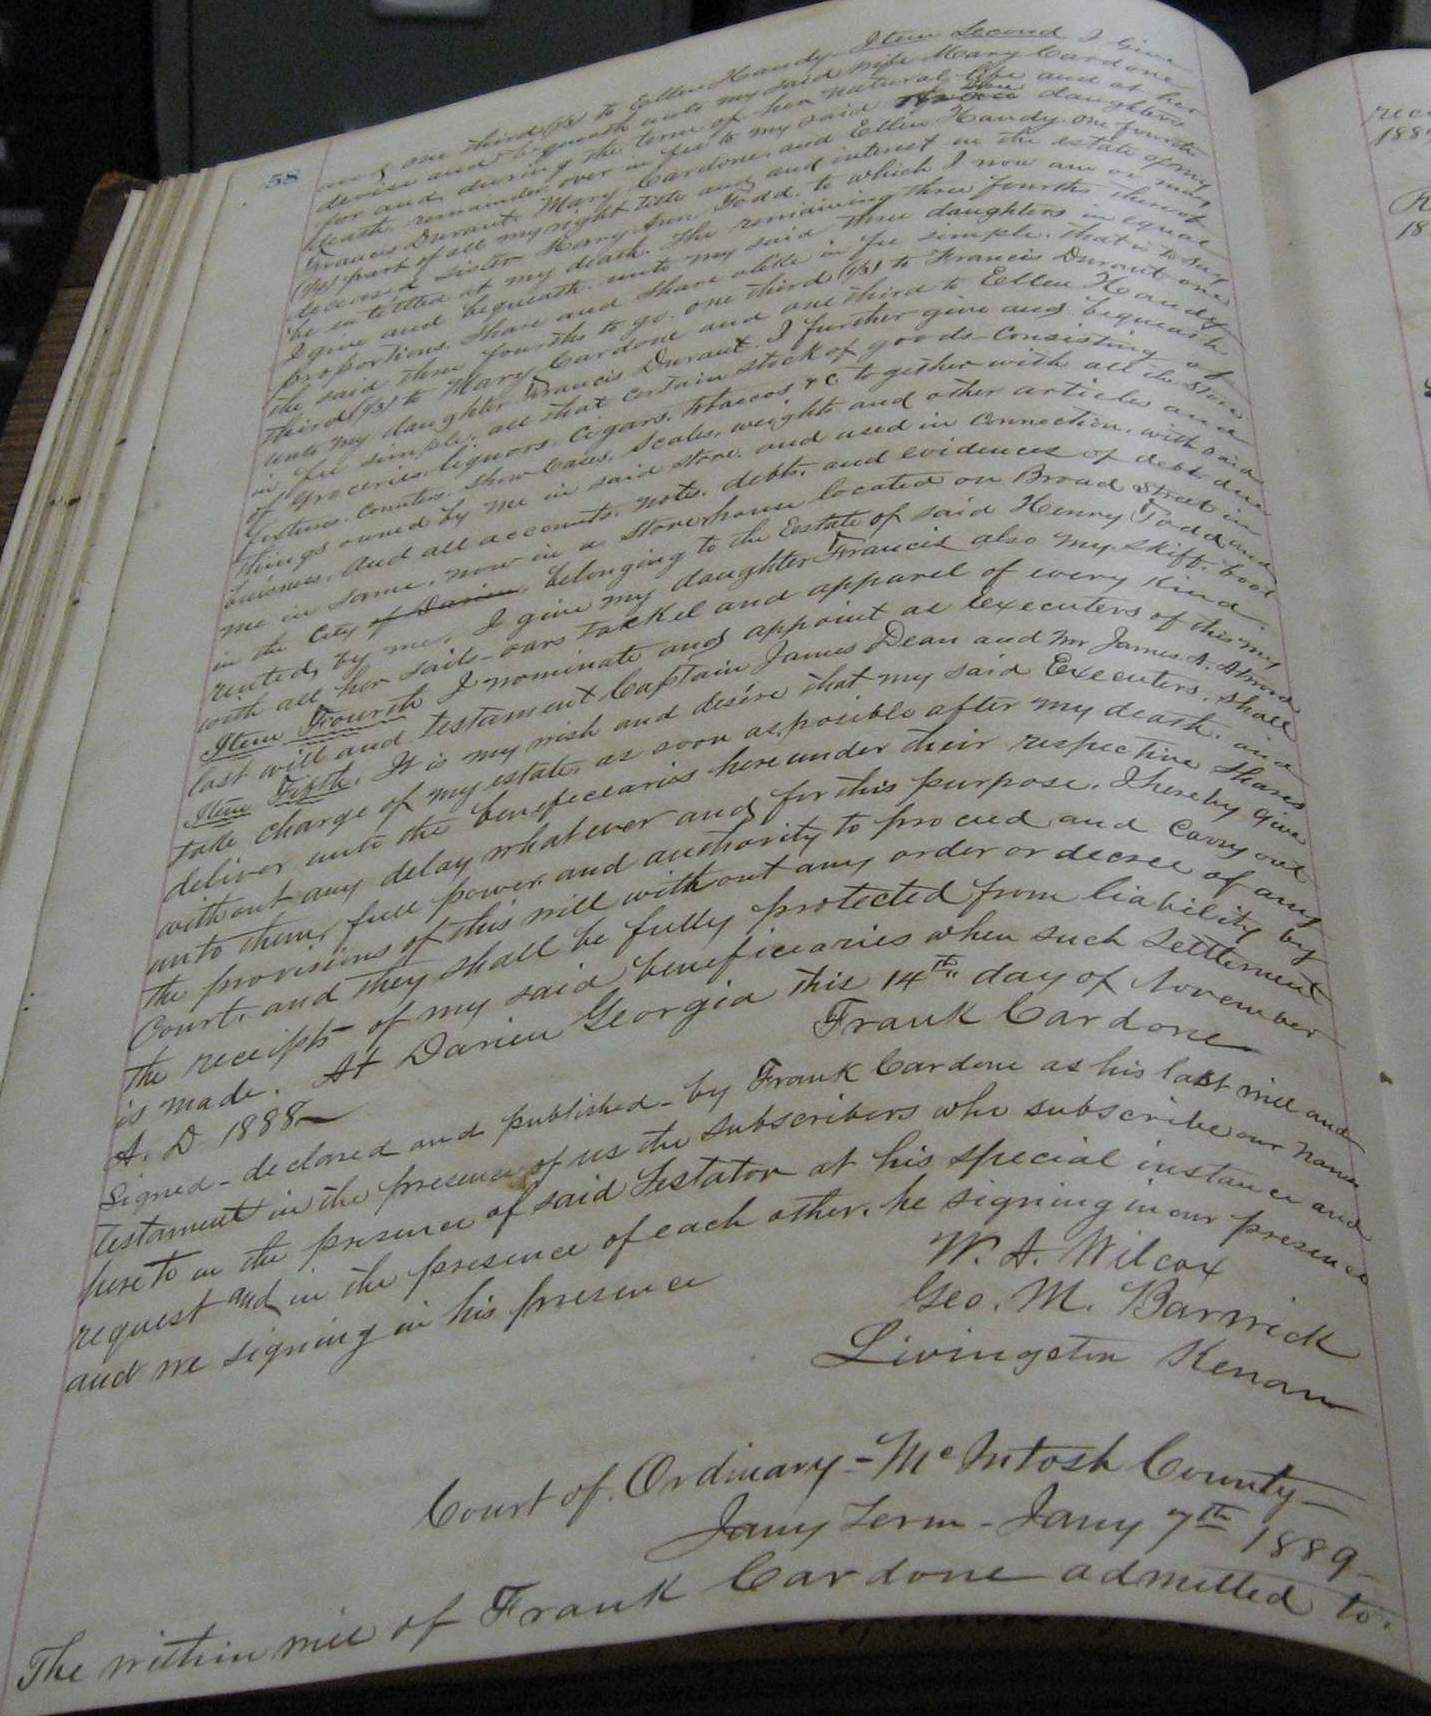 58
one third (1/3) to Ellen Handy Item Second I Give
devise and bequeath unto my said wife Mary Cardone
for and during the term of her natural life and at her
death, remainder over in fee to my said three daughters
Francis Durant, Mary Cardone, and Ellen Handy. one fourth
(1/4) part of all my right title and and interest in the estate of my
deceased Sister Mary Ann Todd, to which I now am or may
be entitled at my death. The remaining three fourths thereof
I give and bequeath unto my said three daughters in equal
proportions. Share and Share alike in fee simple. that is to say
the said three fourths to go. one third (1/3) to Francis Durant one
third (1/3) to Mary Cardone and one third to Ellen Handy
unto my daughter Francis Durant. I further give and bequeath
in fee simple. all that certain stock of goods consisting of
groceries, liquors, Cigars, tobaccos &c together with all the store
fixtures. counters. Show Cases. Scales, weights and other articles and
things owned by me in said store, and used in connection. with said
business, and all accounts. notes. debts. and evidences of debt due
me in same, now in a storehouse located on Broad Street in
in the City of Darien, belonging to the Estate of said Henry Todd and
rented, by me. I give my daughter Francis also my skiff. boat
with all her sails-oars tackel and apparel of every kind.
Item Fourth I nominate and appoint as Executers of this my
last will and testament Captain James Dean and Mr James A.
Item Fifth. It is my wish and desire that my said Executers. shall
take charge of my estate, as soon as posible after my death, and
deliver unto the beneficiaries hereunder their respective shares
without any delay whatever and for this purpose. I hereby give
unto them, full power and authority to proceed and carry out
the provisions of this will without any order or decree of any
Court, and they shall be fully protected from liability by
the receipts of my said beneficiaries when such settlement
is made. At Darien Georgia this 14th day of November
A. D 1888
Frank Cardone
Signed - declared and published - by Frank Cardone as his last will and
testament in the presence of us the subscribers who subscribe our names
hereto in the presence of said Testator at his special instance and
request and in the presence of each other, he signing in our presence
and we signing in his presence
W. A. Wilcox
Geo. M. Barwick
Livingston Kenan
Court of Ordinary - McIntosh County
Jany Term - Jany 7th 1889
The within will of Frank Cardone admitted to